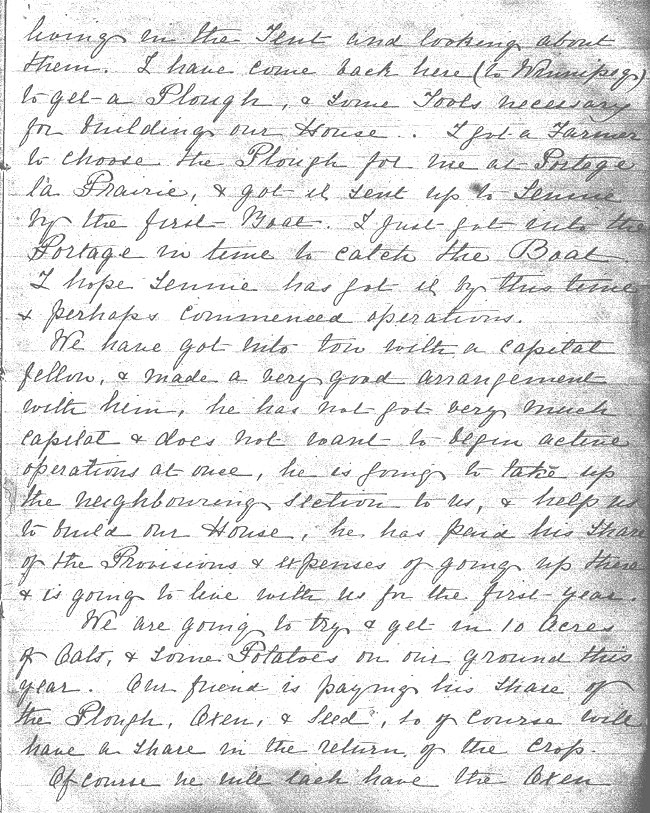 living in the Tent and looking about
them. I have come back here (to Winnipeg)
to get a Plough, & some Tools necessary
for building our House.. I got a Farmer
to choose the Plough for me at Portage
la Prairie, & got it sent up to Lennie
by the first Boat. I just got into the
Portage in time to catch the Boat.
I hope Lennie has got it by this time
& perhaps commenced operations.
We have got into tow with a capital
fellow, & made a very good arrangement
with him, he has not got very much
capital & does not want to begin active
operations at once, he is going to take up
the neighbouring section to us, & help us
to build our House, he has paid his share
of the Provisions & expenses of going up there
& is going to live with us for the first year.
We are going to try & get in 10 Acres
of Oats, & some Potatoes on our ground this
year. Our friend is paying his share of
the Plough, Oxen, & Seed, so of course will
have a share in the return of the crop.
Of course we will each have the Oxen